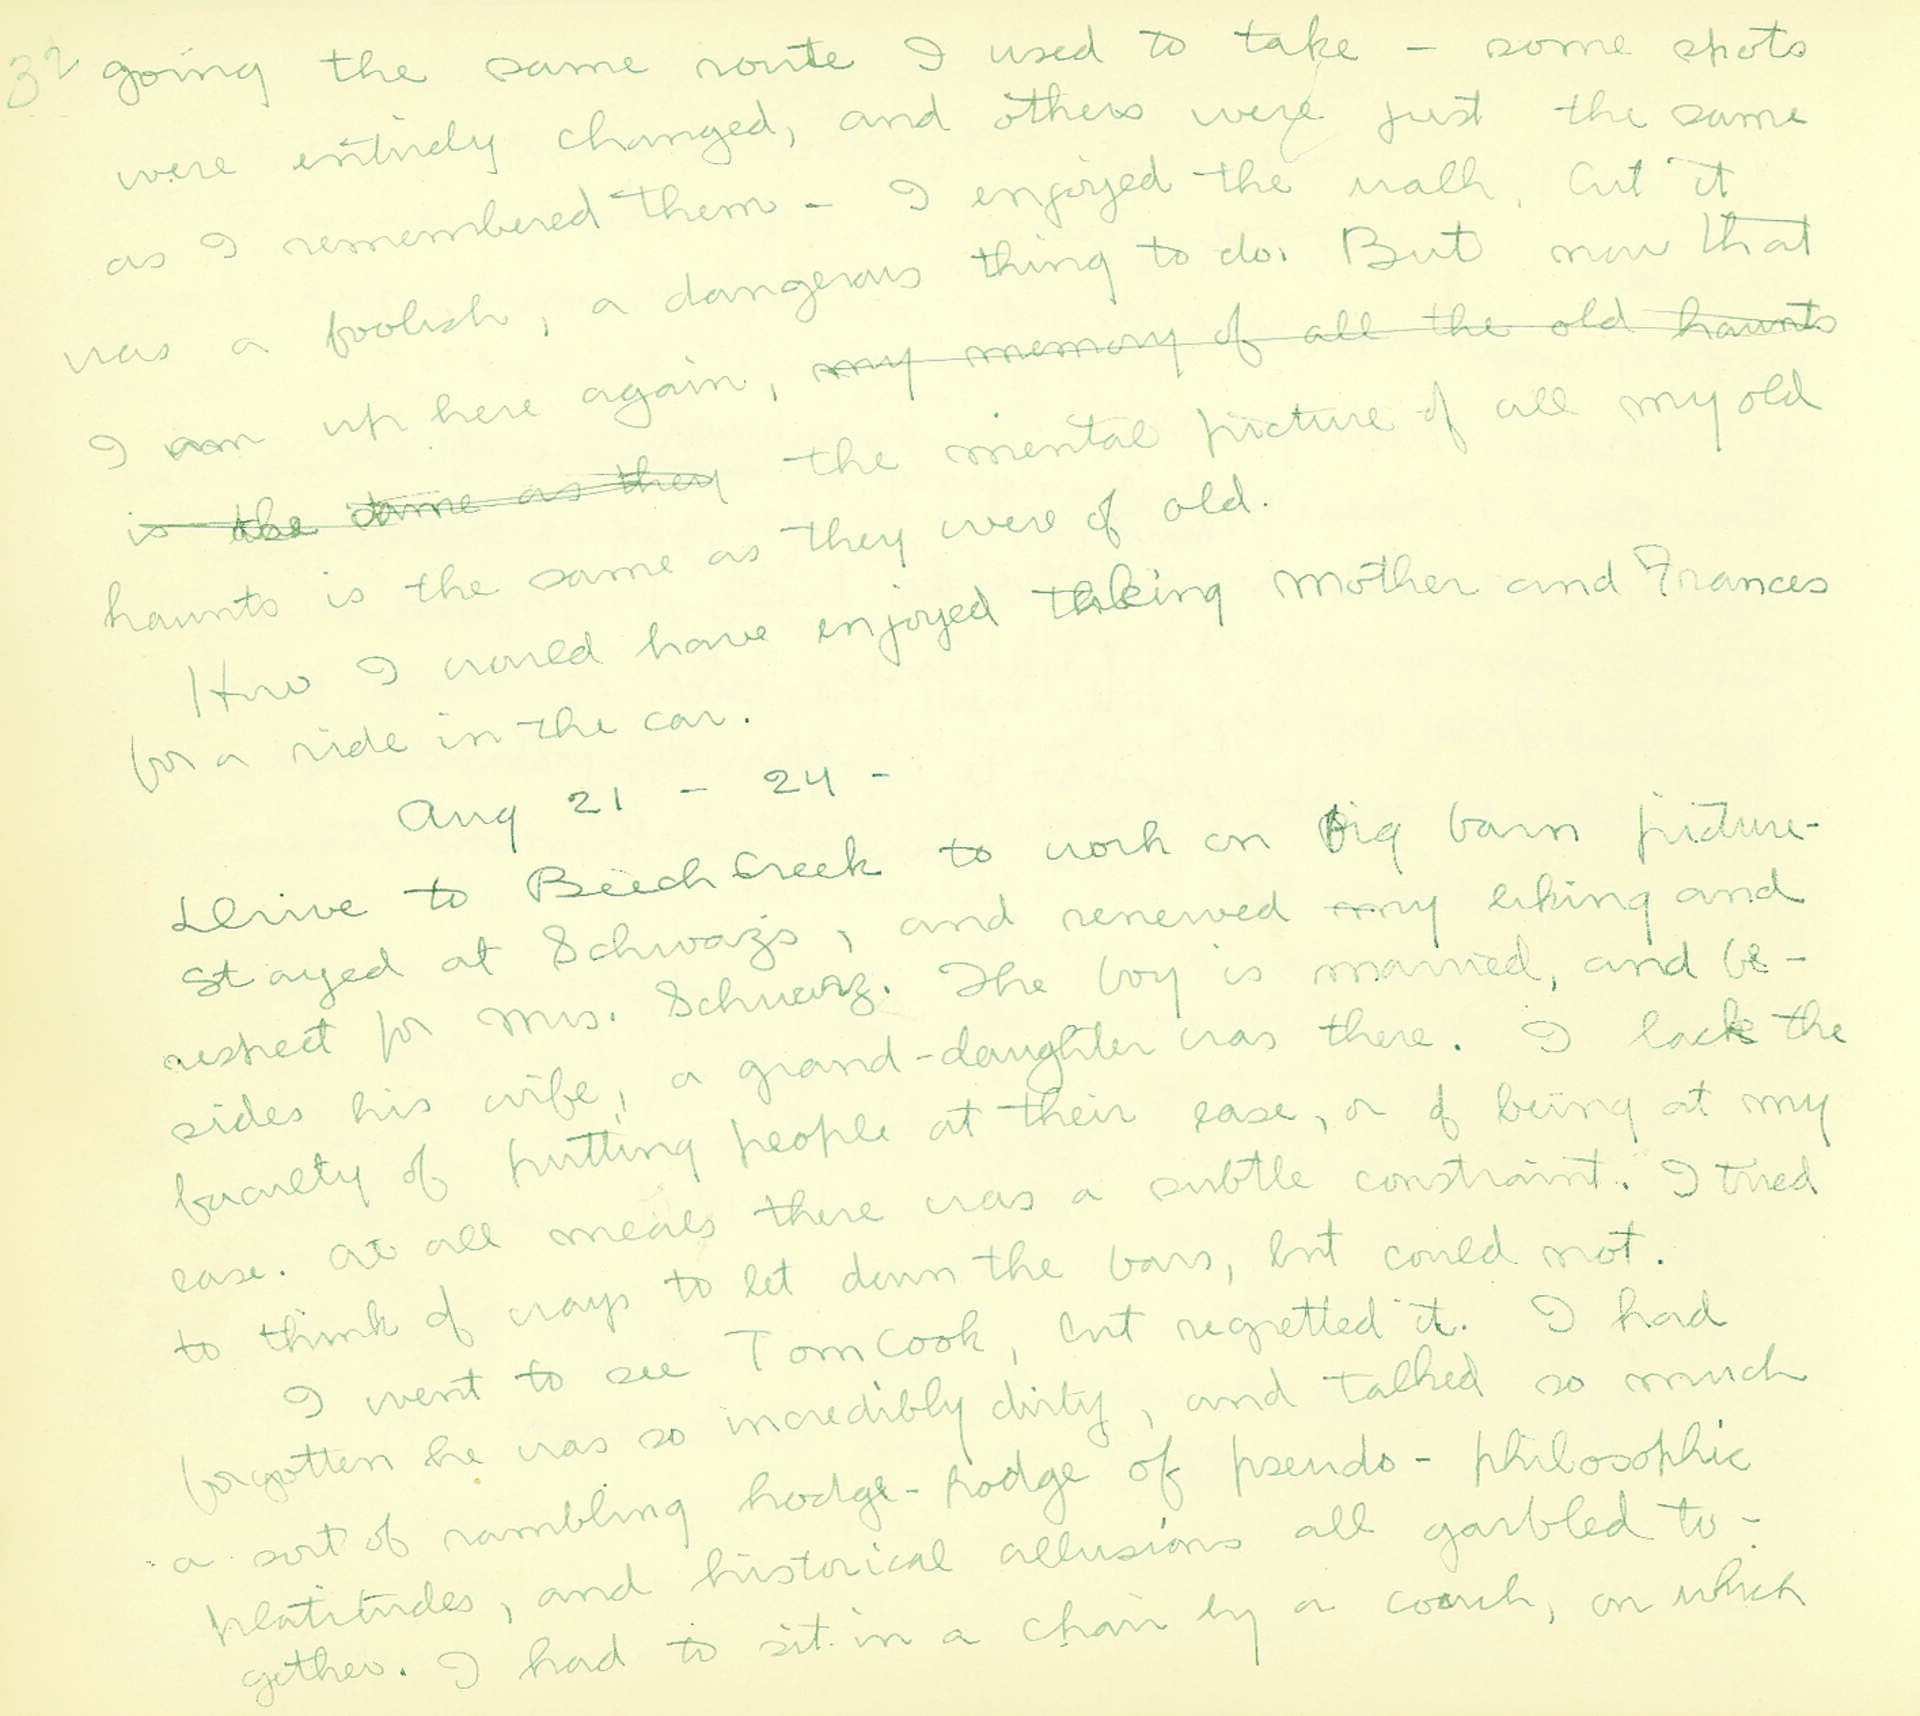 32 going the same route I used to take - some spots
were entirely changed, and others were just the same
as I remembered them - I enjoyed the walk, but it
was a foolish, a dangerous thing to do. But now that
I am up here again, my memory of all the old haunts
is the same as they the mental picture of all my old
haunts is the same as they were of old.
How I would have enjoyed taking Mother and Frances
for a ride in the car.
Aug 21 - 24 -
Drive to Beech Creek to work on big barn picture -
Stayed at Schwarz's, and renewed my liking and
respect for Mrs. Schwarz. The boy is married, and be-
sides his wife, a grand-daughter was there. I lack the
faculty of putting people at their ease, or of being at my
ease. At all meals there was a subtle constraint. I tried
to think of ways to let down the bars, but could not.
I went to see Tom Cook, but regretted it. I had
forgotten he was so incredibly dirty, and talked so much
a sort of rambling hodge-podge of pseudo-philosophic
platitudes, and historical allusions all garbled to-
gether. I had to sit in a chair by a couch, on which